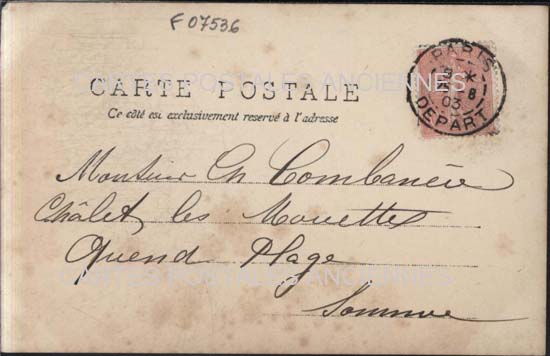 F 07536
CARTE POSTALE
CARTES POSTALES ANCIENNES
Ce côté est exclusivement reservé à l'adresse
PARIS
8
03
DEPART
Monsieur Ch Combanéïre
Châlet les Mouettes
Quend Plage
CARTES POSTALES ANCIENNES
Somme